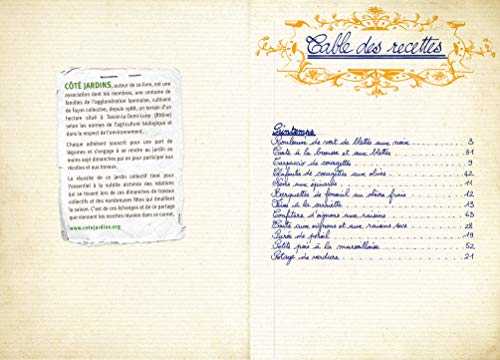 CÔTÉ JARDINS, auteur de ce livre, est une
association dont les membres, une centaine de
familles de l'agglomération lyonnaise, cultivent
de façon collective, depuis 1986, un terrain d'un
hectare situé à Tassin-la-Demi-Lune (Rhône)
selon les normes de l'agriculture biologique et
dans le respect de l'environnement...
Chaque adhérent souscrit pour une part de
légumes et s'engage à se rendre au jardin au
moins sept dimanches par an pour participer aux
récoltes et aux travaux.
La réussite de ce jardin collectif tient pour
l'essentiel à la subtile alchimie des relations
qui se nouent lors de ces dimanches de travaux
collectifs et des nombreuses fêtes qui émaillent
la saison. C'est de ces échanges et de ce partage
que viennent les recettes réunies dans ce carnet.
www.cotejardins.org
Table des recettes
Printemps
Rouleaux de vert de blettes aux noix 3
Tarte à la brousse et aux blettes 51
Carpaccio de courgettes 9
Clafoutis de courgettes aux olives 42
Flans aux épinards 11
Barquettes de fenouil au chèvre frais 12
Fèves à la sarriette 13
Confiture d'oignons aux raisins 45
Tarte aux oignons et aux raisins secs 28
Purée de persil 19
Petits pois à la marseillaise 52
Potage de verdure 21